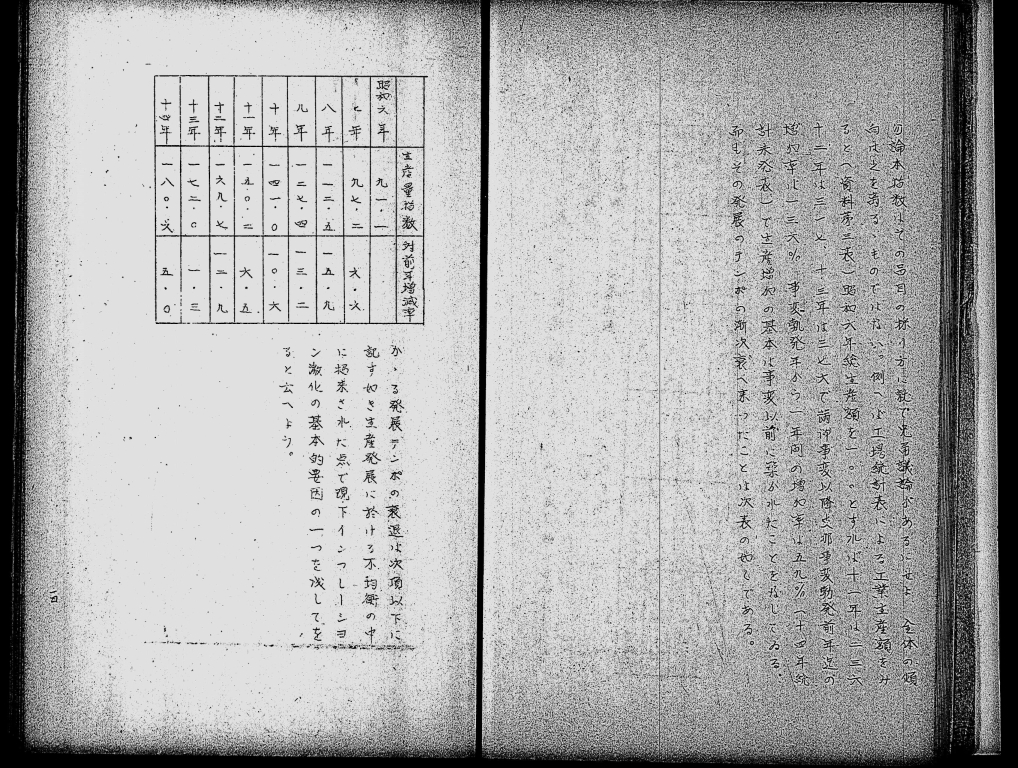 勿論本指数はその品目の採り方に就て兎角議論があるにせよ 全体の傾
向は之を蔽ふ ものではない。例へば工場統計表による工業生産額をみ
ると(資料第三表)昭和六年総生産額を一〇〇とすれば十一年は二三六
十二年は三一七 十三年は三七六で満洲事変以降支那事変勃発前年迄の
増加率は一三六% 事変勃発年から一年間の増加率は五九%(十四年統
計未発表)で生産増加の基本は事変以前に築かれたことを示してゐる。
而もその発展のテンポの漸次衰へ来つたことは次表の如くである。
生産量指数 対前年増減率
昭和六年 九一・一
七年 九七・二 六・六
八年 一一二・五 一五・九
九年 一二七・四 一三・二
十年 一四一・〇 一〇・六
十一年 一五〇・二 六・五
十二年 一六九・七 一二・九
十三年 一七二・〇 一・三
十四年 一八〇・六 五・〇
かゝる発展テンポの衰退は次項以下に
記す如き生産発展に於ける不均衡の中
に招来された点で現下インフレーシヨ
ン激化の基本的要因の一つを成してを
ると云へよう。
一四